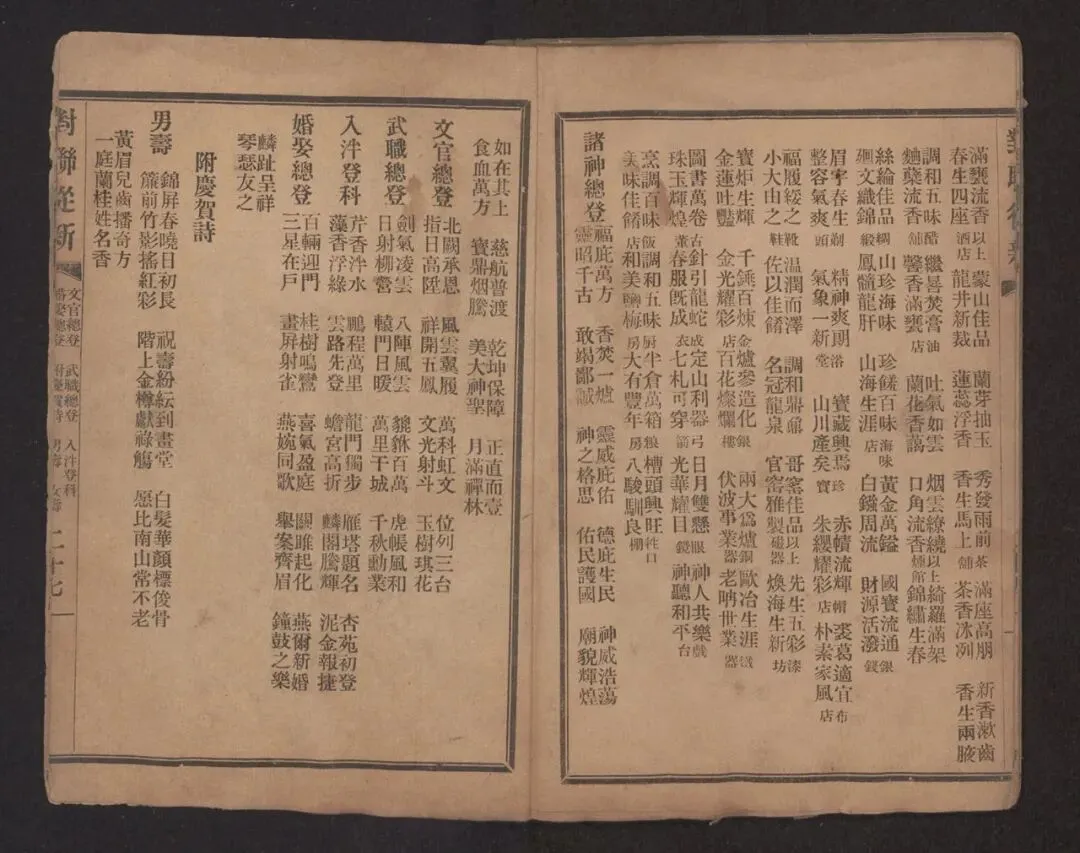 滿甕流香以上 蒙山佳品 蘭芽抽玉 秀發雨前茶 滿座高朋 新香漱齒
春生四座酒店 龍井新裁 蓮蕊浮香 香生馬上舖 茶香冰冽 香生兩腋
調和五味醋 繼晷焚膏油 吐氣如雲 烟雲繚繞以上 綺羅滿架
麯蘗流香舖 馨香滿甕店 蘭花香藹 口角流香煙館 錦繡生春
絲綸佳品綢 山珍海味 珍饈百味海味 黃金萬鎰 國寶流通銀
迴文織錦緞 鳳髓龍肝 山海生涯店 白鏹周流 財源活潑錢
眉宇春生剃 精神爽朗浴 寶藏興焉珍 赤幘流輝帽 裘葛適宜布
整容氣爽頭 氣象一新堂 山川產矣寶 朱纓耀彩店 朴素家風店
福履綏之靴 温潤而澤 調和鼎鼐 哥窑佳品以上 先生五彩漆
小大由之鞋 佐以佳餚 名冠龍泉 官窑雅製磁器 煥海生新坊
寶炬生輝 千錘百煉金 爐參造化銀 兩大爲爐銅 歐冶生涯鐵
金蓮吐豔 金光耀彩店 百花燦爛樓 伏波事業器 老呥世業器
圖書萬卷古 針引龍蛇成 定山利器弓 日月雙懸眼 神人共樂戲
珠玉輝煌董 春服既成衣 七札可穿箭 光華耀目鏡 神聽和平台
烹調百味飯 調和五味厨 半倉萬箱粮 槽頭興旺牲口
美味佳餚店 和美鹽梅房 大有豐年房 八駿馴良棚
諸神總登 福庇萬方 香焚一爐 靈威庇佑 德庇生民 神威浩蕩
靈昭千古 敢竭鄙誠 神之格思 佑民護國 廟貌輝煌
如在其上 慈航普渡 乾坤保障 正直而壹
食血萬方 寶鼎烟騰 美大神聖 月滿禪林
文官總登 北闕承恩 風雲翼履 萬科虹文 位列三台
指日高陞 祥開五鳳 文光射斗 玉樹琪花
武職總登 劍氣凌雲 八陣風雲 貔貅百萬 虎帳風和
日射柳營 轅門日暖 萬里干城 千秋勳業
入泮登科 芹香泮水 鵬程萬里 龍門獨步 雁塔題名 杏苑初登
藻香浮綠 雲路先登 蟾宮高折 麟閣騰輝 泥金報捷
婚娶總登 百輛迎門 桂樹鳴鸞 喜氣盈庭 關雎起化 燕爾新婚
三星在戶 畫屏射雀 燕婉同歌 舉案齊眉 鐘鼓之樂
麟趾呈祥
琴瑟友之
附慶賀詩
男壽 錦屏春曉日初長 祝壽紛紜到畫堂 白髮華顏標俊骨
簾前竹影搖紅彩 階上金樽獻祿觴 愿比南山常不老
黃眉兒齒播奇方
一庭蘭桂姓名香
對聯從新 文官總登 武職總登 入泮登科 婚娶總登 附慶賀詩 男壽 女壽 二十七